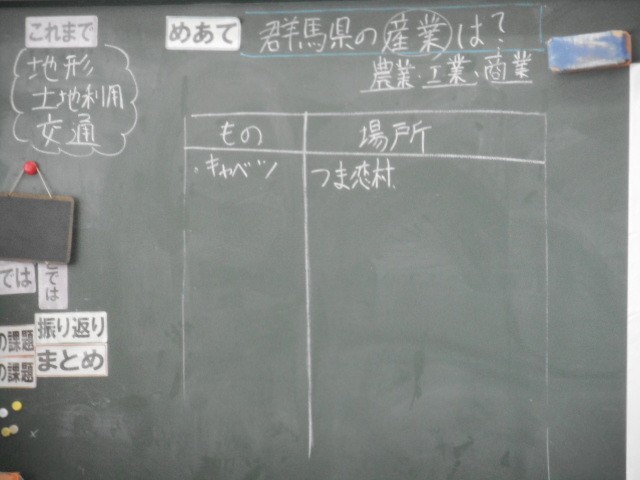 これまで
地形
土地利用
交通
めあて
群馬県の産業は?
農業・工業、商業
もの 場所
・キャベツ つま恋村
では
では
の課題
振り返り
の課題
まとめ